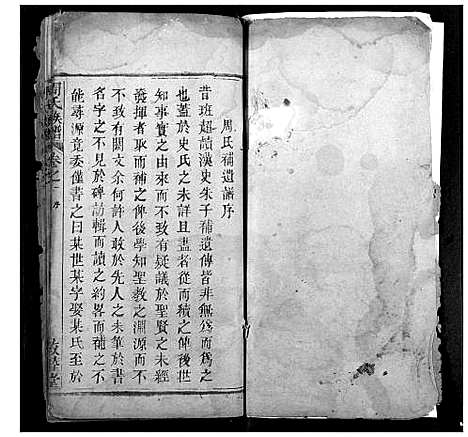 周氏補遺譜序
昔班超讀漢史朱子補遺傳皆非無為而為之
也蓋於史氏之未詳且盡者從而積之俾後世
知事實之由來而不致有疑議於聖賢之未經
發揮者取而補之俾後學知聖教之淵源而不
不致有闕文余何許人敢於先人之未筆於書
名字之不見於碑訪輯而讀之約畧而補之不
能尋源竟委僅書之曰某世某字娶某氏至於
周氏族譜 卷之一 序